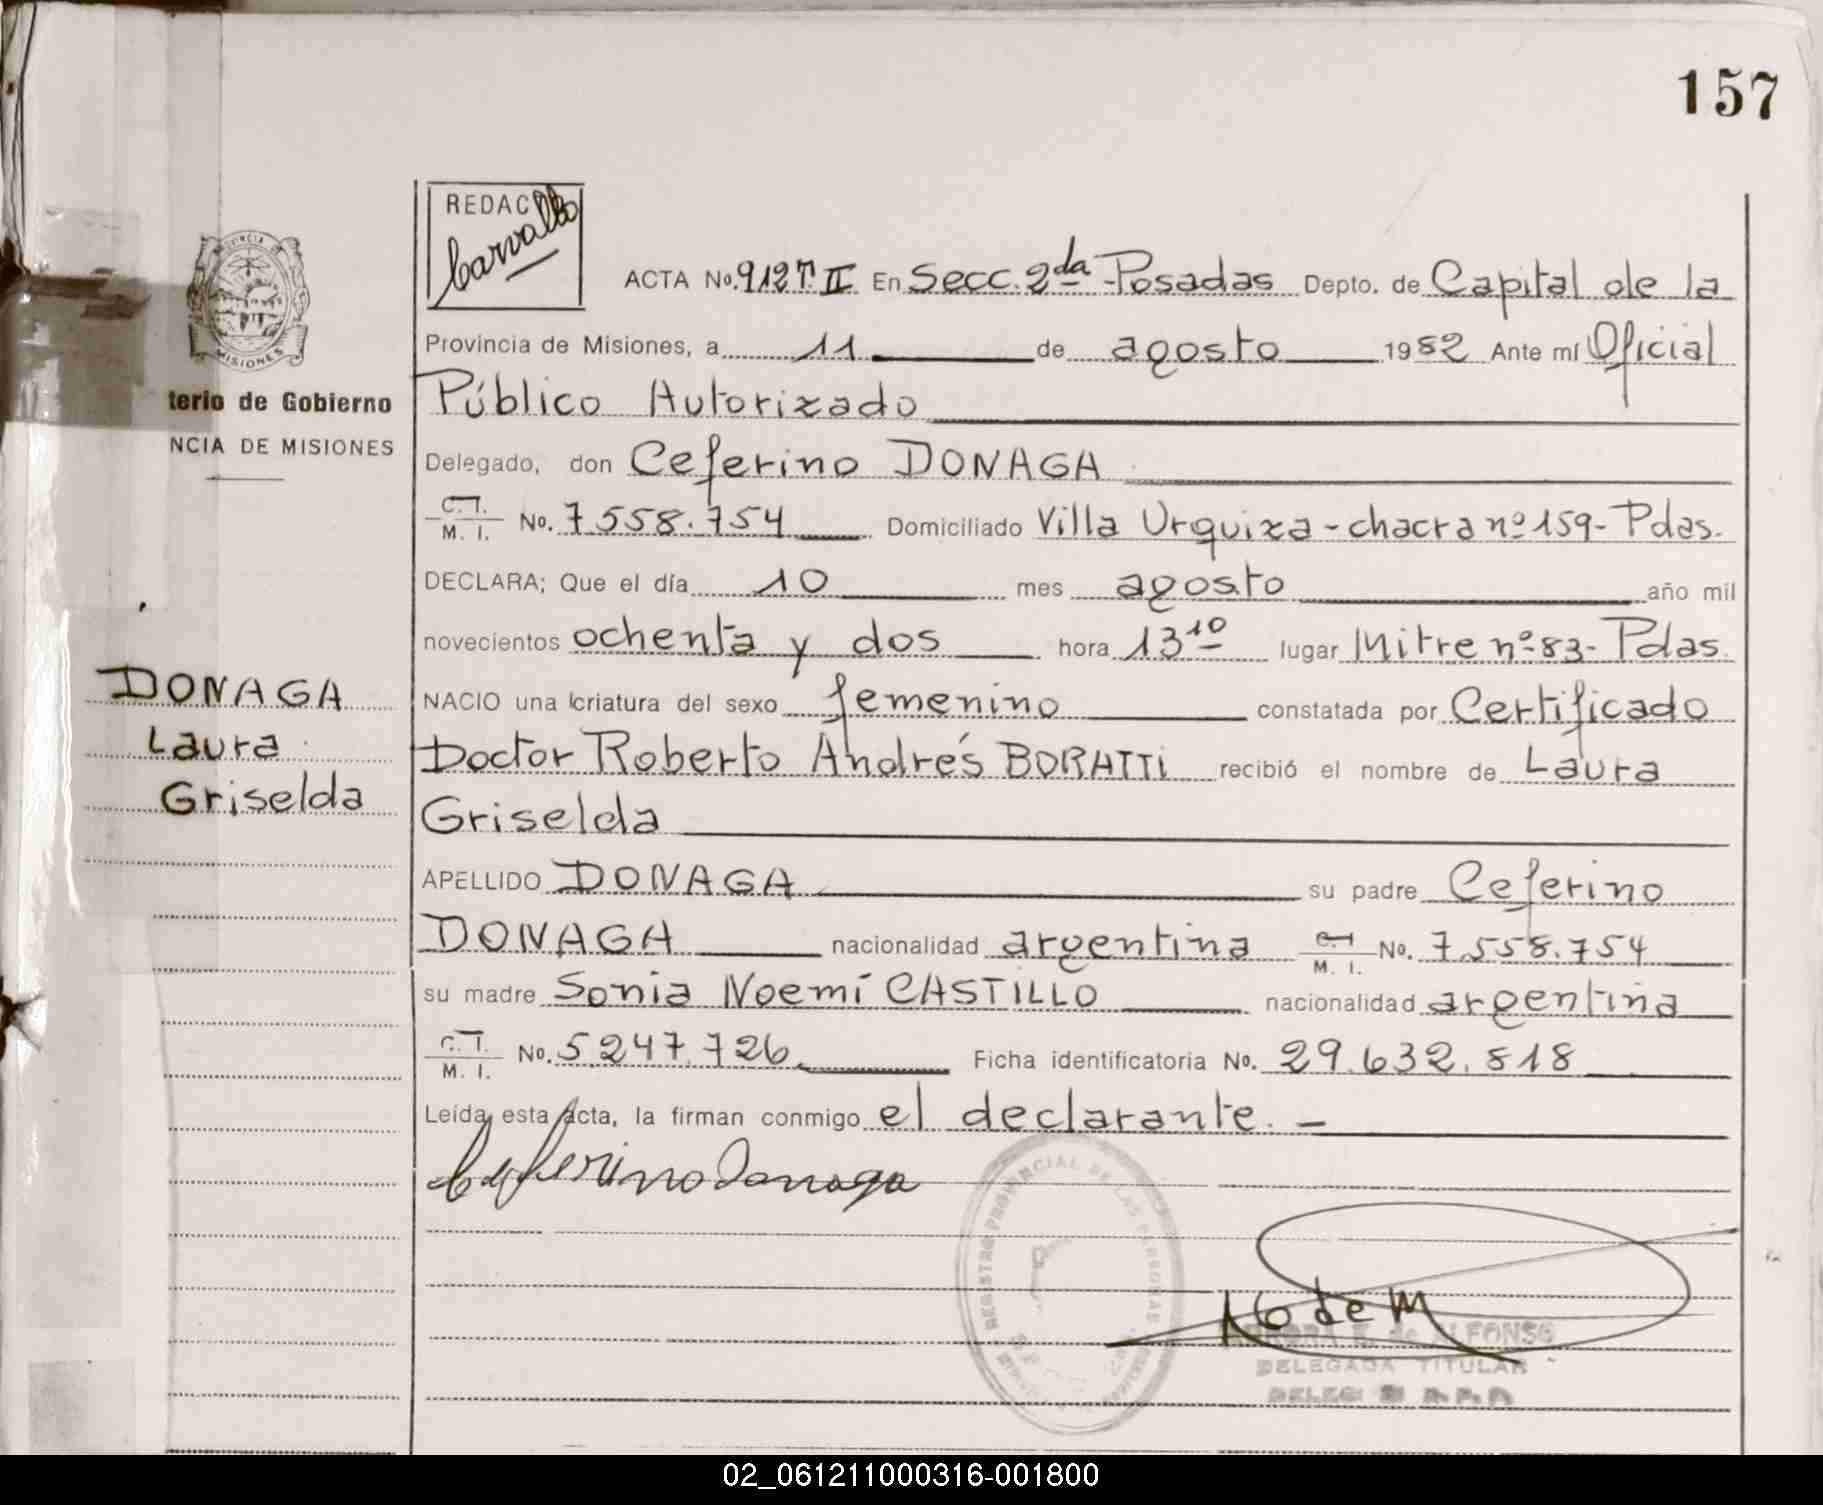 157
REDAC
Carvallo
ACTA No. 912 T. II En Secc. 2da Posadas Depto. de Capital de la
Provincia de Misiones, a 11 de agosto 1982 Ante mí Oficial
Público Autorizado
terio de Gobierno
NCIA DE MISIONES
MISIONES
Delegado, don Ceferino DONAGA
C.I.
M. I. No. 7558.754 Domiciliado Villa Urquiza - chacra nº 159 - Pdas.
DECLARA; Que el día 10 mes agosto año mil
novecientos ochenta y dos hora 13 10 lugar Mitre nº 83 - Pdas.
DONAGA
Laura
Griselda
NACIO una criatura del sexo femenino constatada por Certificado
Doctor Roberto Andrés BORATTI recibió el nombre de Laura
Griselda
APELLIDO DONAGA su padre Ceferino
DONAGA nacionalidad argentina M. I. No. 7.558.754
su madre Sonia Noemí CASTILLO nacionalidad argentina
C.I.
M. I. No. 5.247.726 Ficha identificatoria No. 29.632.818
Leída esta acta, la firman conmigo el declarante. -
Ceferino Donaga
REGISTRO PROVINCIAL DE LAS PERSONAS
de ALFONSO
DELEGADA TITULAR
02_061211000316-001800